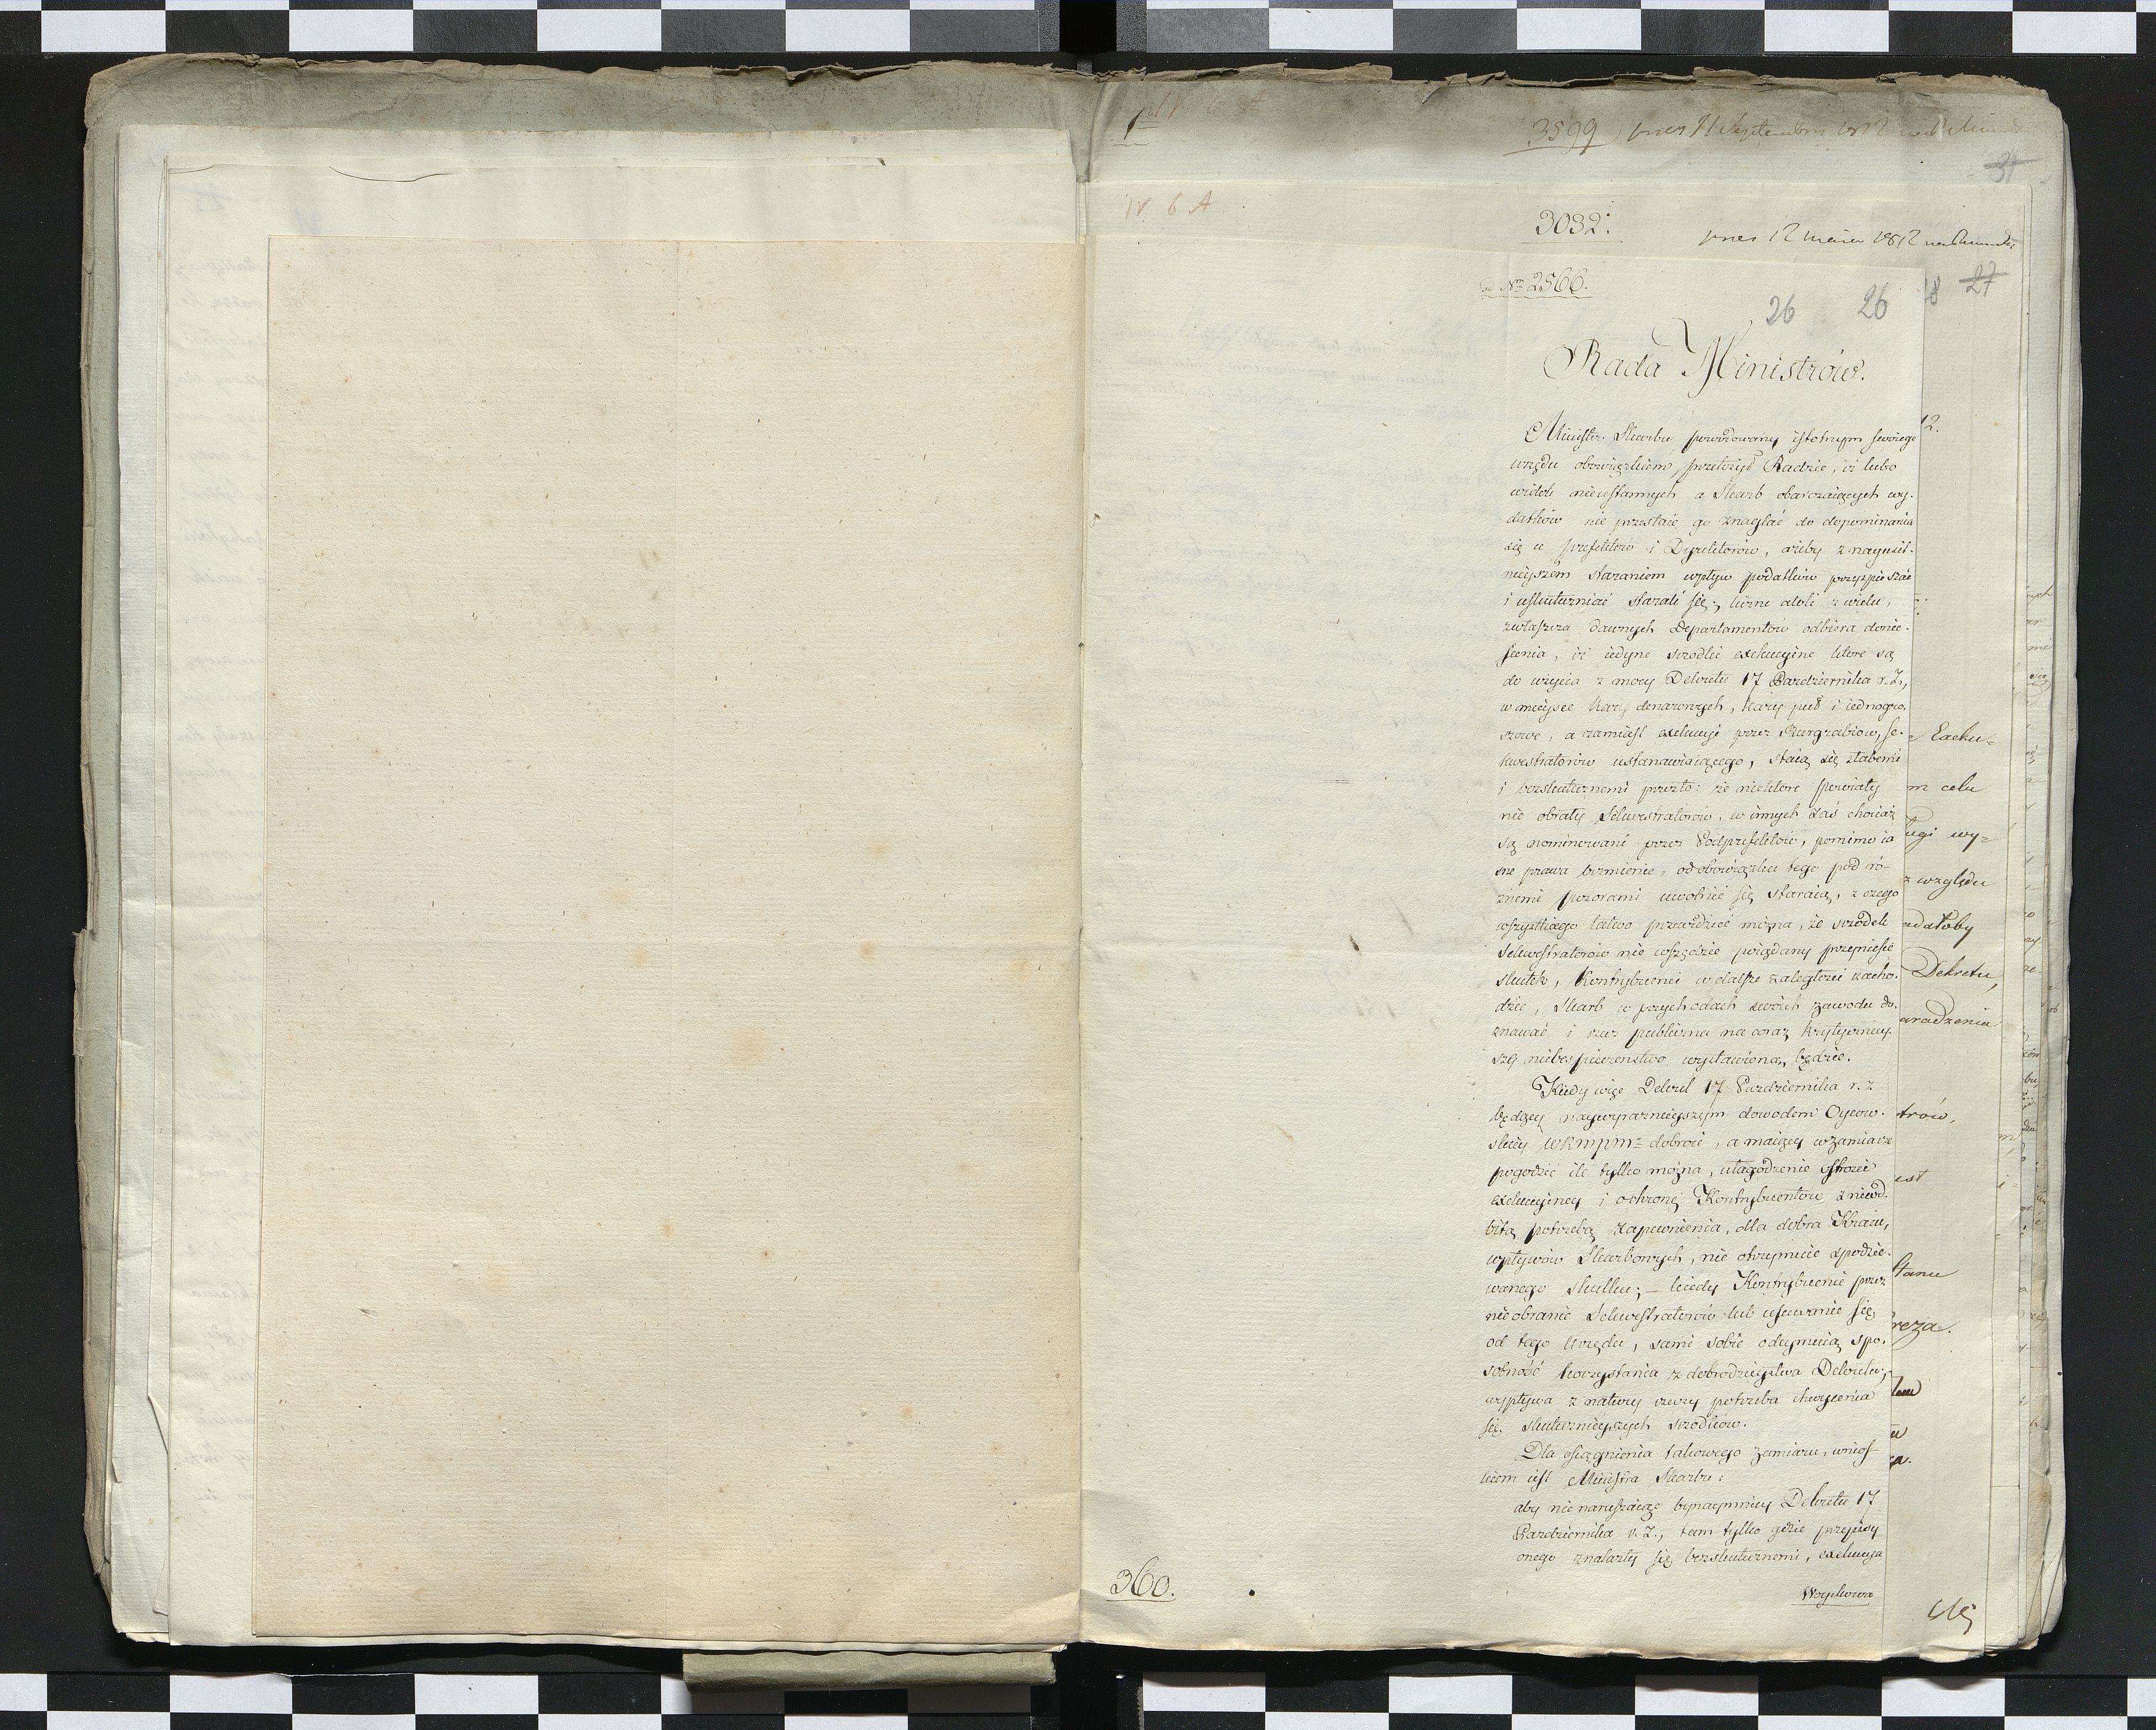 3599
31
IV. 6 A
3032:
ad Nrm 2566.
26 26 18 27
Rada Ministrów.
Minister Skarbu powodowany istotnym swoiego
urzędu obowiązkiem, przełożył Radzie, iż lubo
widok nieustannych a Skarb obarczaiących wy-
datków nie przestaie go znaglać do dopominania
się u prefektów i Dyrektorów, ażeby z nayusil-
nieyszém staraniem wpływ podatków przyspieszać
i uskuteczniać starali się; liczne atoli z wielu,
zwłaszcza dawnych Departamentów odbiera donie-
sienia, iż iedyne srodki exekucyine które są
do użycia z mocy Dekretu 17 Pazdziernika r. z.,
w mieysce kary denarowych, kary puł i iednogro-
szowe, a zamiast exekucyi przez Burgrabiów, Se-
kwestratorów ustanawiaiącego, staią się słabemi
i bezskutecznemi przeto: że niektóre powiaty
nie obrały Sekwestratorów, w innych zaś chociaż
są nominowani przez Podprefektów, pomimo ia
sne prawa brzmienie, od obowiązku tego pod ró-
żnemi pozorami uwolnić się staraią, z czego
wszystkiego łatwo przewidzieć można, że srodek
Sekwestratorów nie wszędzie pożądany przyniesie
skutek, Kontrybuenci w dalsze zaległości zacho-
dzić, Skarb w przychodach swoich zawodu do-
znawać i rzecz publiczna na coraz krytyczniey-
szę niebespieczenstwo wystawioną będzie.
Kiedy więc Dekret 17 Pazdziernika r. z
będący naywyraznieyszym dowodem Oycow-
skiey WKMPM= dobroci, a maiący w zamiarze
pogodzić ile tylko można, ułagodzenie ostrości
exekucyiney i ochronę Kontrybuentów z nieod-
bitą potrzebą zapewnienia, dla dobra Kraiu,
wpływów Skarbowych, nie otrzymuie spodzie-
wanego skutku; – kiedy Kontrybuenci przez
nieobranie Sekwestratorów lub usuwanie się
od tego Urzędu, sami sobie odeymuią spo-
sobność korzystania z dobrodzieystwa Dekretu;
wypływa z natury rzeczy potrzeba chwycenia
się skutecznieyszych srodków.
Dla osiągnienia takowego zamiaru, wnios-
kiem iest Ministra Skarbu:
aby nienaruszaiąc bynaymniey Dekretu 17
Pazdziernika r. z., tam tylko gdzie przepisy
onego znalazły się bezskutecznemi, exekucya
Woyskowa
12.
Exeku=
m celu
ługi wy=
z względu
udałoby
Dekretu,
aradzenia
trów,
est
Stanu
reza.
360.